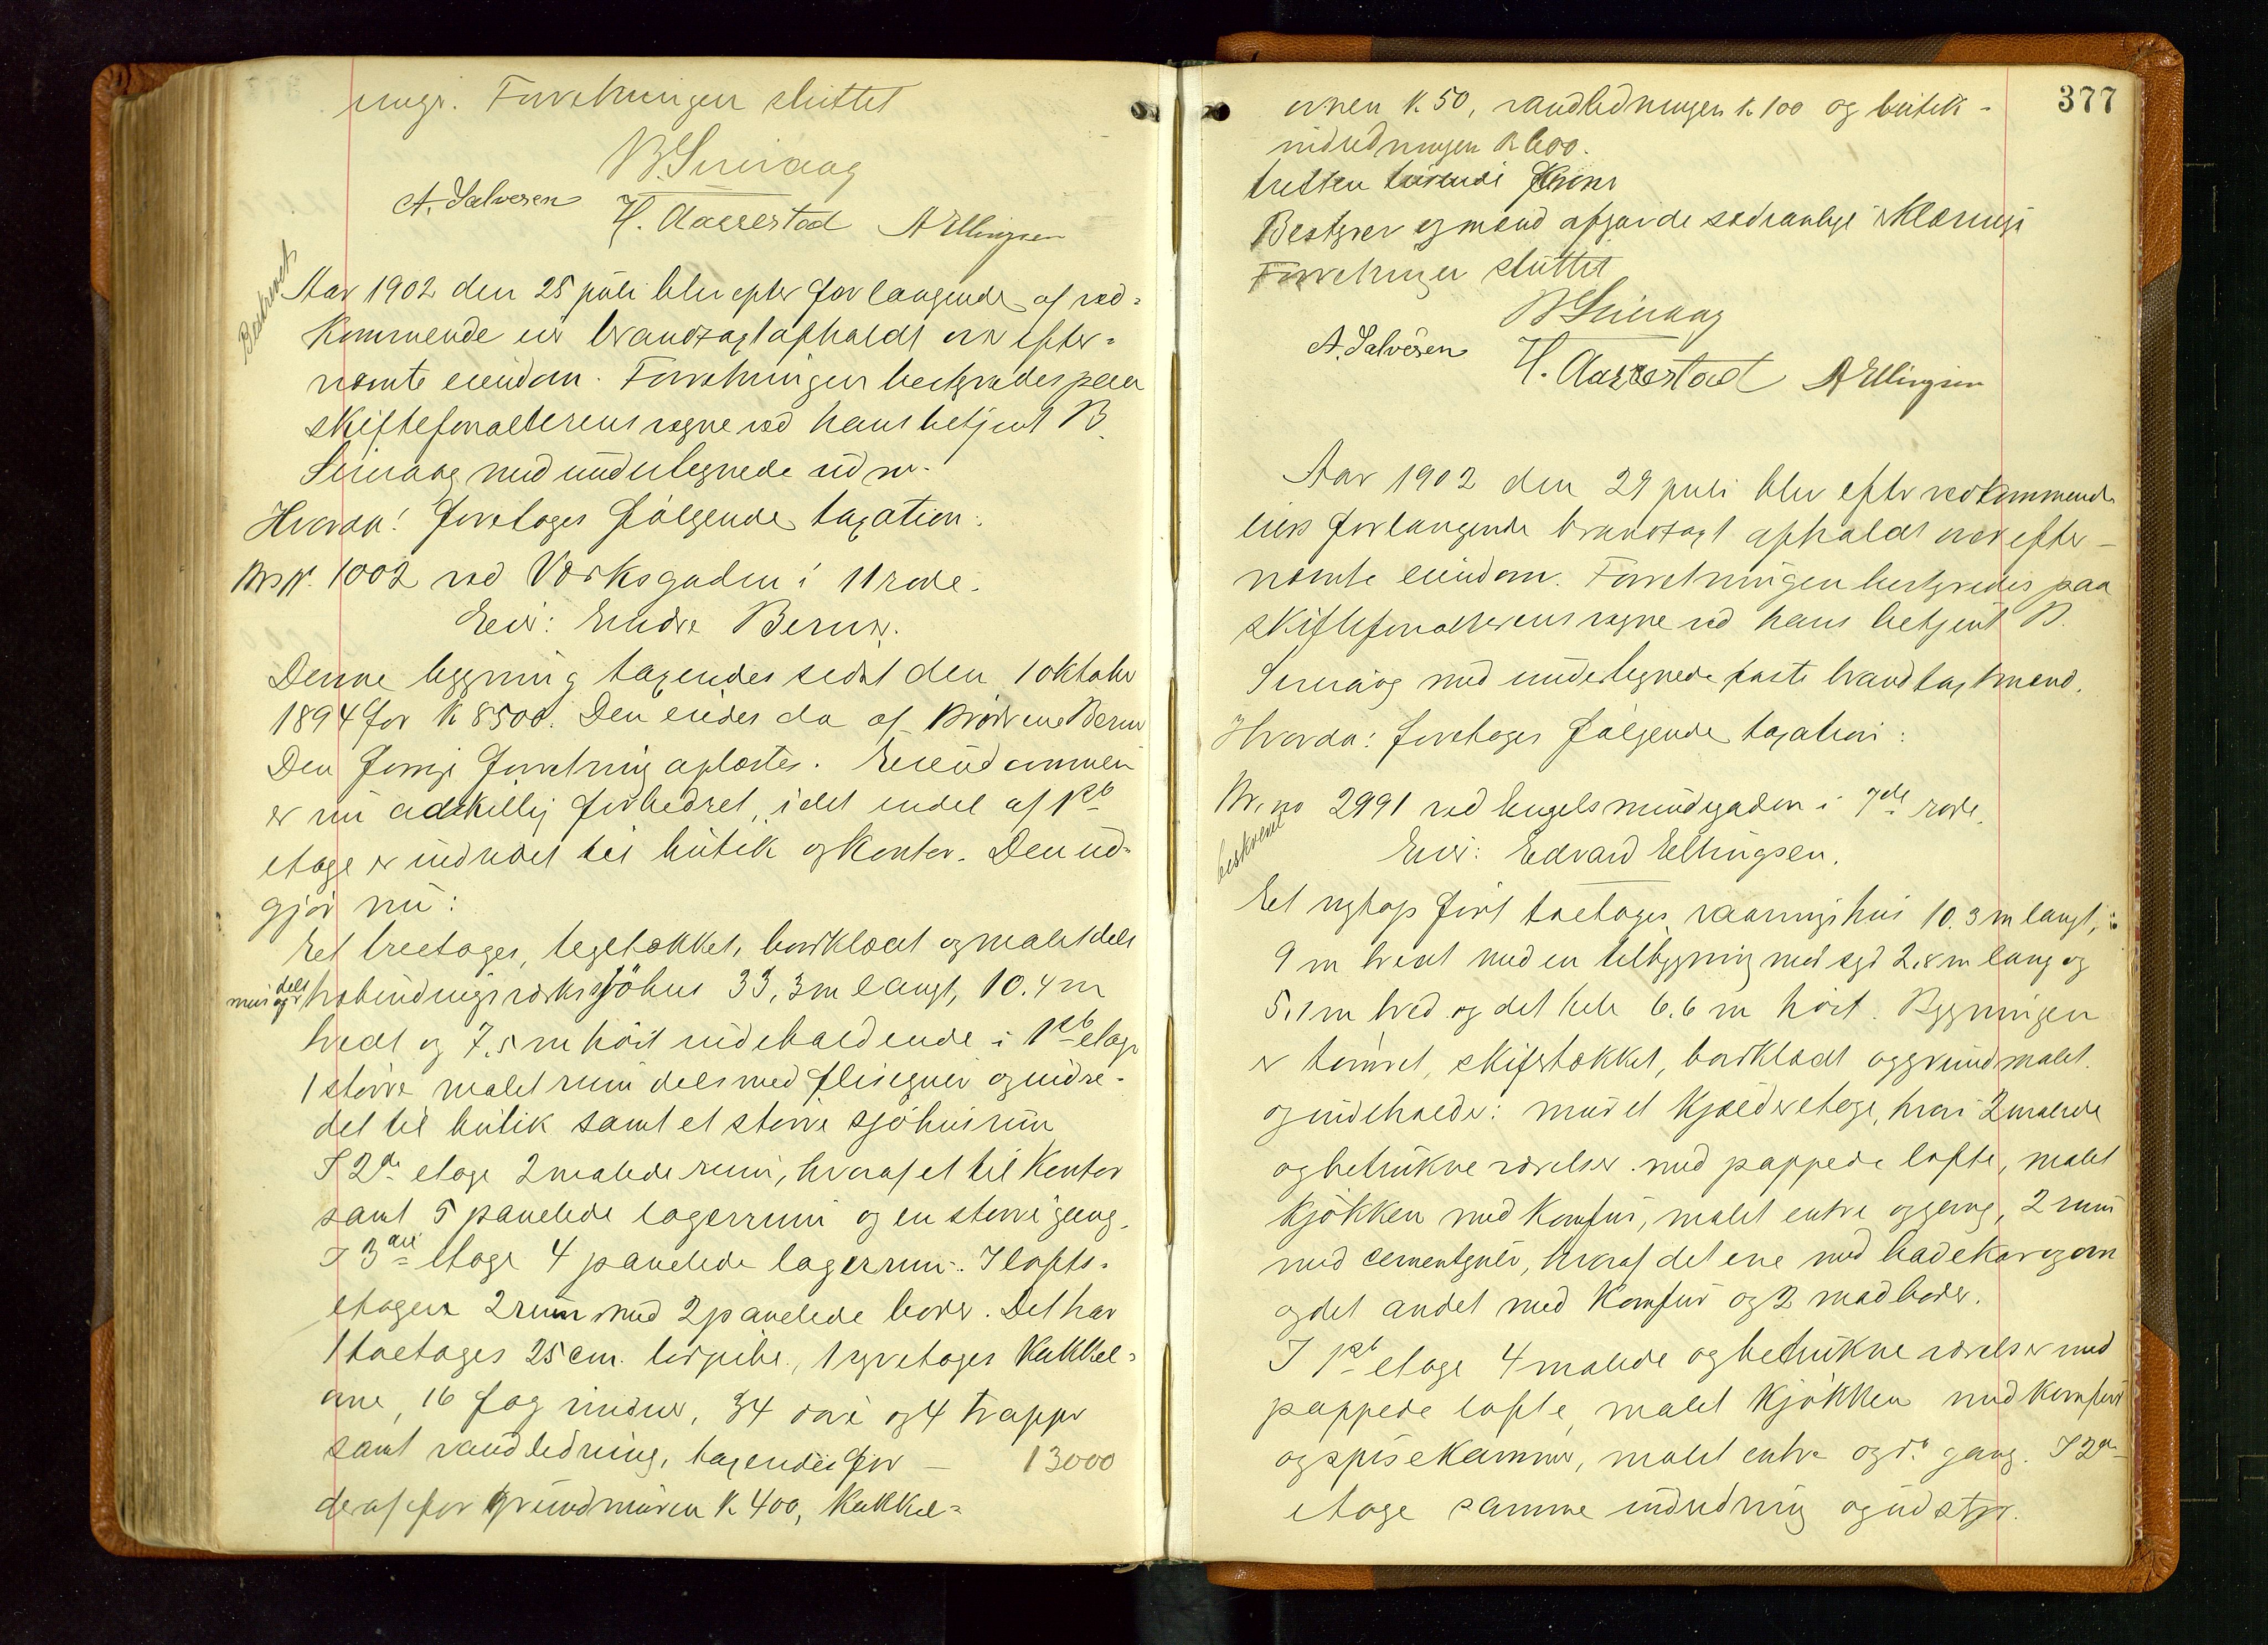 ringr. Forretningen sluttet
B. Sunaag
A. Salvesen H. Aarrestad A Ellingsen
Beskrevet
Aar 1902 den 25 juli blev efter forlangende af ved=
kommende eier brandtaxt afholdt over efter=
nævnte eiendom. Forretningen bestyredes paa
skifteforvalterens vegne ved hans betjent B.
Sunaag med undertegnede mænd.
Hvorda! foretoges følgende taxation:
Brs No. 1002 ved Værksgaden i 11 rode.
Eier: Endre Berner.
Denne bygning taxeredes sidst den 1 oktober
1894 for K 8500. Den eiedes da af Brødrene Berner
Den forrige forretning oplæstes. Eiendommen
er nu adskillig forbedret, idet endel af 1ste
etage er indredet til butik og kontor. Den ud=
gjør nu:
Et treetages, teglstækket, bordklædt og malet dels
mur og dels udmurs bindingsværks sjöhus 33,3 m langt, 10.4 m
bredt og 7,5 m höit indeholdende i 1ste etage
1 større malet rum dels med flisegulv og indre=
det til butik samt et større sjöhusrum
I 2den etage 2 malede rum, hvoraf et til kontor
samt 5 panelede lagerrum og en større gang.
I 3die etage 4 panelede lagerrum. I lofts=
etagen 2 rum med 2 panelede boder. Det har
1 toetages 25 cm. tørpibe, 1 syvetages kakkel=
ovne, 16 fag vinduer, 34 döre og 4 trapper
samt vandledning, taxeredes for — 13000
deraf for grundmuren K 400, kakkel=
377
ovnen K. 50, vandledningen K 100 og butik=
indredningen K 600.
tretten tusende Kroner
Bestyrer og mænd afgav de sædvanlige erklæringer
Forretningen sluttet
B Sunaag
A. Salvesen H. Aarrestad A Ellingsen
Aar 1902 den 29 juli blev efter vedkommende
eiers forlangende brandtaxt afholdt over efter=
nævnte eiendom. Forretningen bestyredes paa
skifteforvalterens vegne ved hans betjent B.
Sunaag med undertegnede faste brandtaxtmænd.
Hvorda: foretoges følgende taxation:
Br. no 2991 ved Engelsmindegaden i 7de rode.
beskrevet
Eier: Edvard Ellingsen.
Et nyt opført toetages vaaningshus 10.3 m langt,
9 m bredt med en tilbygning mod syd 2,8 m lang og
5.1 m bred og det hele 6.6 m höit. Bygningen
er tømret, skifertækket, bordklædt og grundmalet
og indeholder: muret kjælderetage, hvori 2 malede
og betrukne værelser med pappede lofte, malet
kjökken med komfur, malet entre og gang, 2 rum
med cementgulv, hvoraf det ene med badekar og ovn
og det andet med komfur og 2 madboder.
I 1ste etage 4 malede og betrukne værelser med
pappede lofte, malet kjökken med komfur
og spisekammer, malet entre og do. gang. I 2den
etage samme indredning og udstyr.